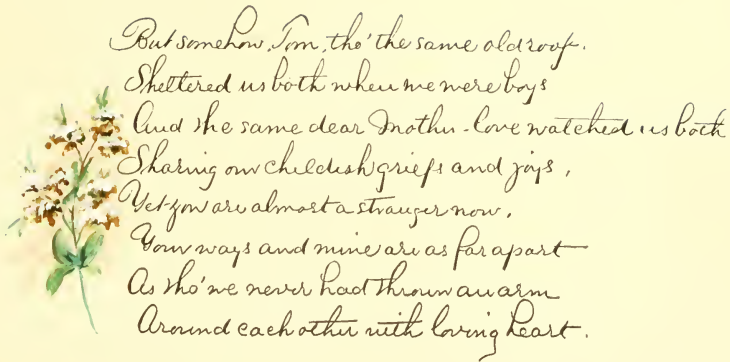 But somehow, Tom, tho' the same old roof.
Sheltered us both when we were boys
And the same dear Mother-love watched us both
Sharing our childish griefs and joys,
Yet you are almost a stranger now,
Your ways and mine are as far apart
As tho' we never had thrown an arm
Around each other with loving heart.